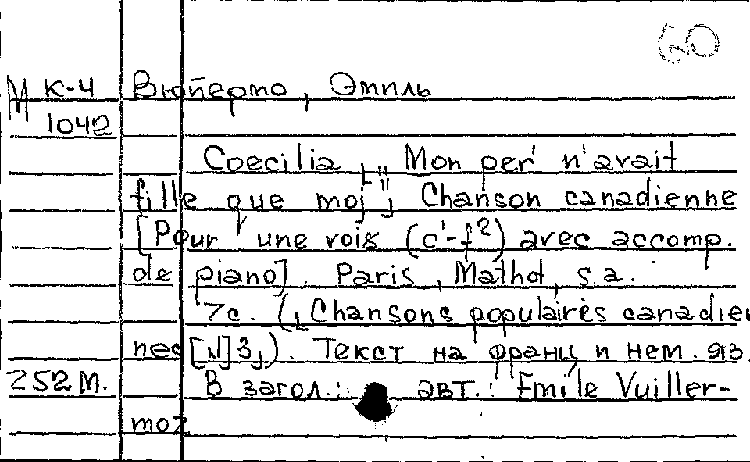 60
М К-4 Вюйермо, Эмиль
1042
Coecilia „Mon per' n'avait
fille que moi", Chanson canadienne
[Pour une voix (c'-f²) avec accomp.
de piano]. Paris, Mathot, s.a.
7с. („Chansons populaires canadien
nes [N]3„). Текст на франц и нем. яз.
252М. В загол.: авт.: Emile Vuiller-
moz